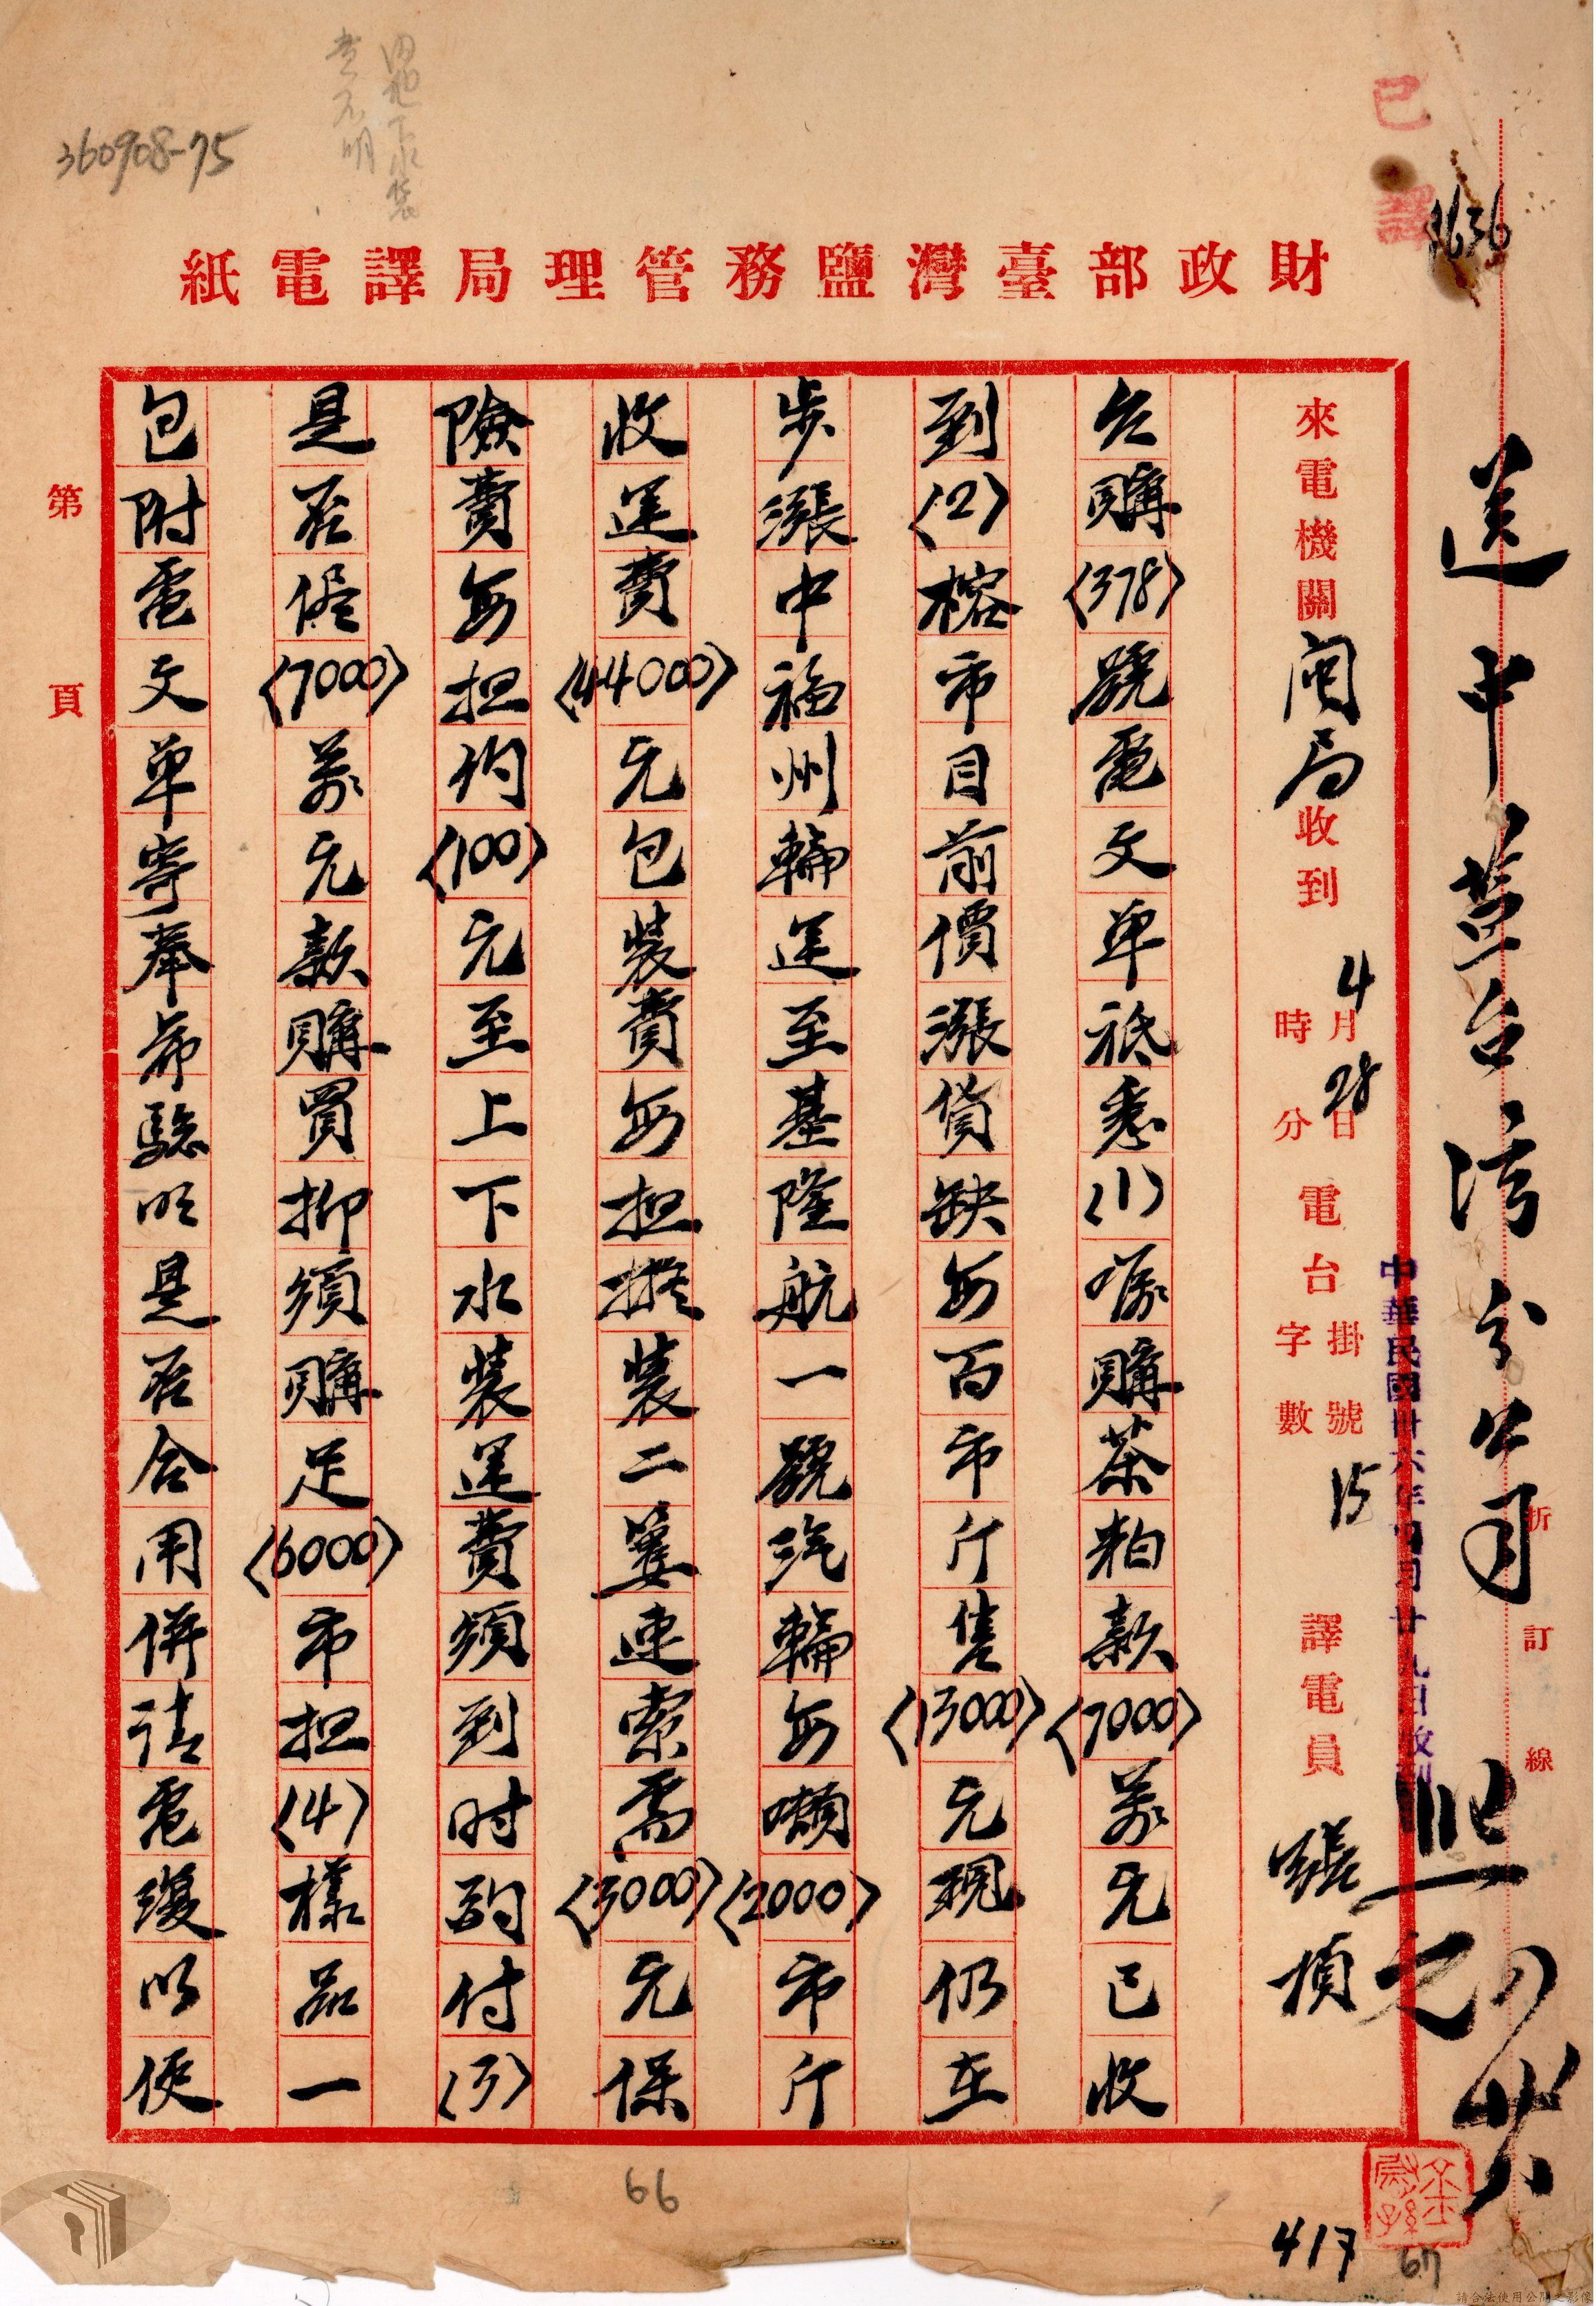 360908-75
已譯
財政部臺灣鹽務管理局譯電紙
來電機關 閩局 收到 4月28日 時 分 電台掛號 15 字數 譯電員 張楨
公購(378)號電文單祗悉(1)價購茶粕款(7000)萬元已收
到(2)榕市目前價漲貨缺每百市斤售(13000)元現仍在
步漲中福州輪運至基隆航一號汽輪每噸(2000)市斤
收運費(44000)元包裝費每担擬裝二簍連索需(3000)元保
險費每担約(100)元至上下水裝運費須到时酌付(3)
是否侭(7000)萬元款購買抑須購足(6000)市担(4)樣品一
包附電文單寄奉希驗收是否合用併請電復以便
第 頁
送中鹽台湾分公司
中華民國卅六年四月廿九日收到
折訂線
66
417
67
請合法使用公開之影像